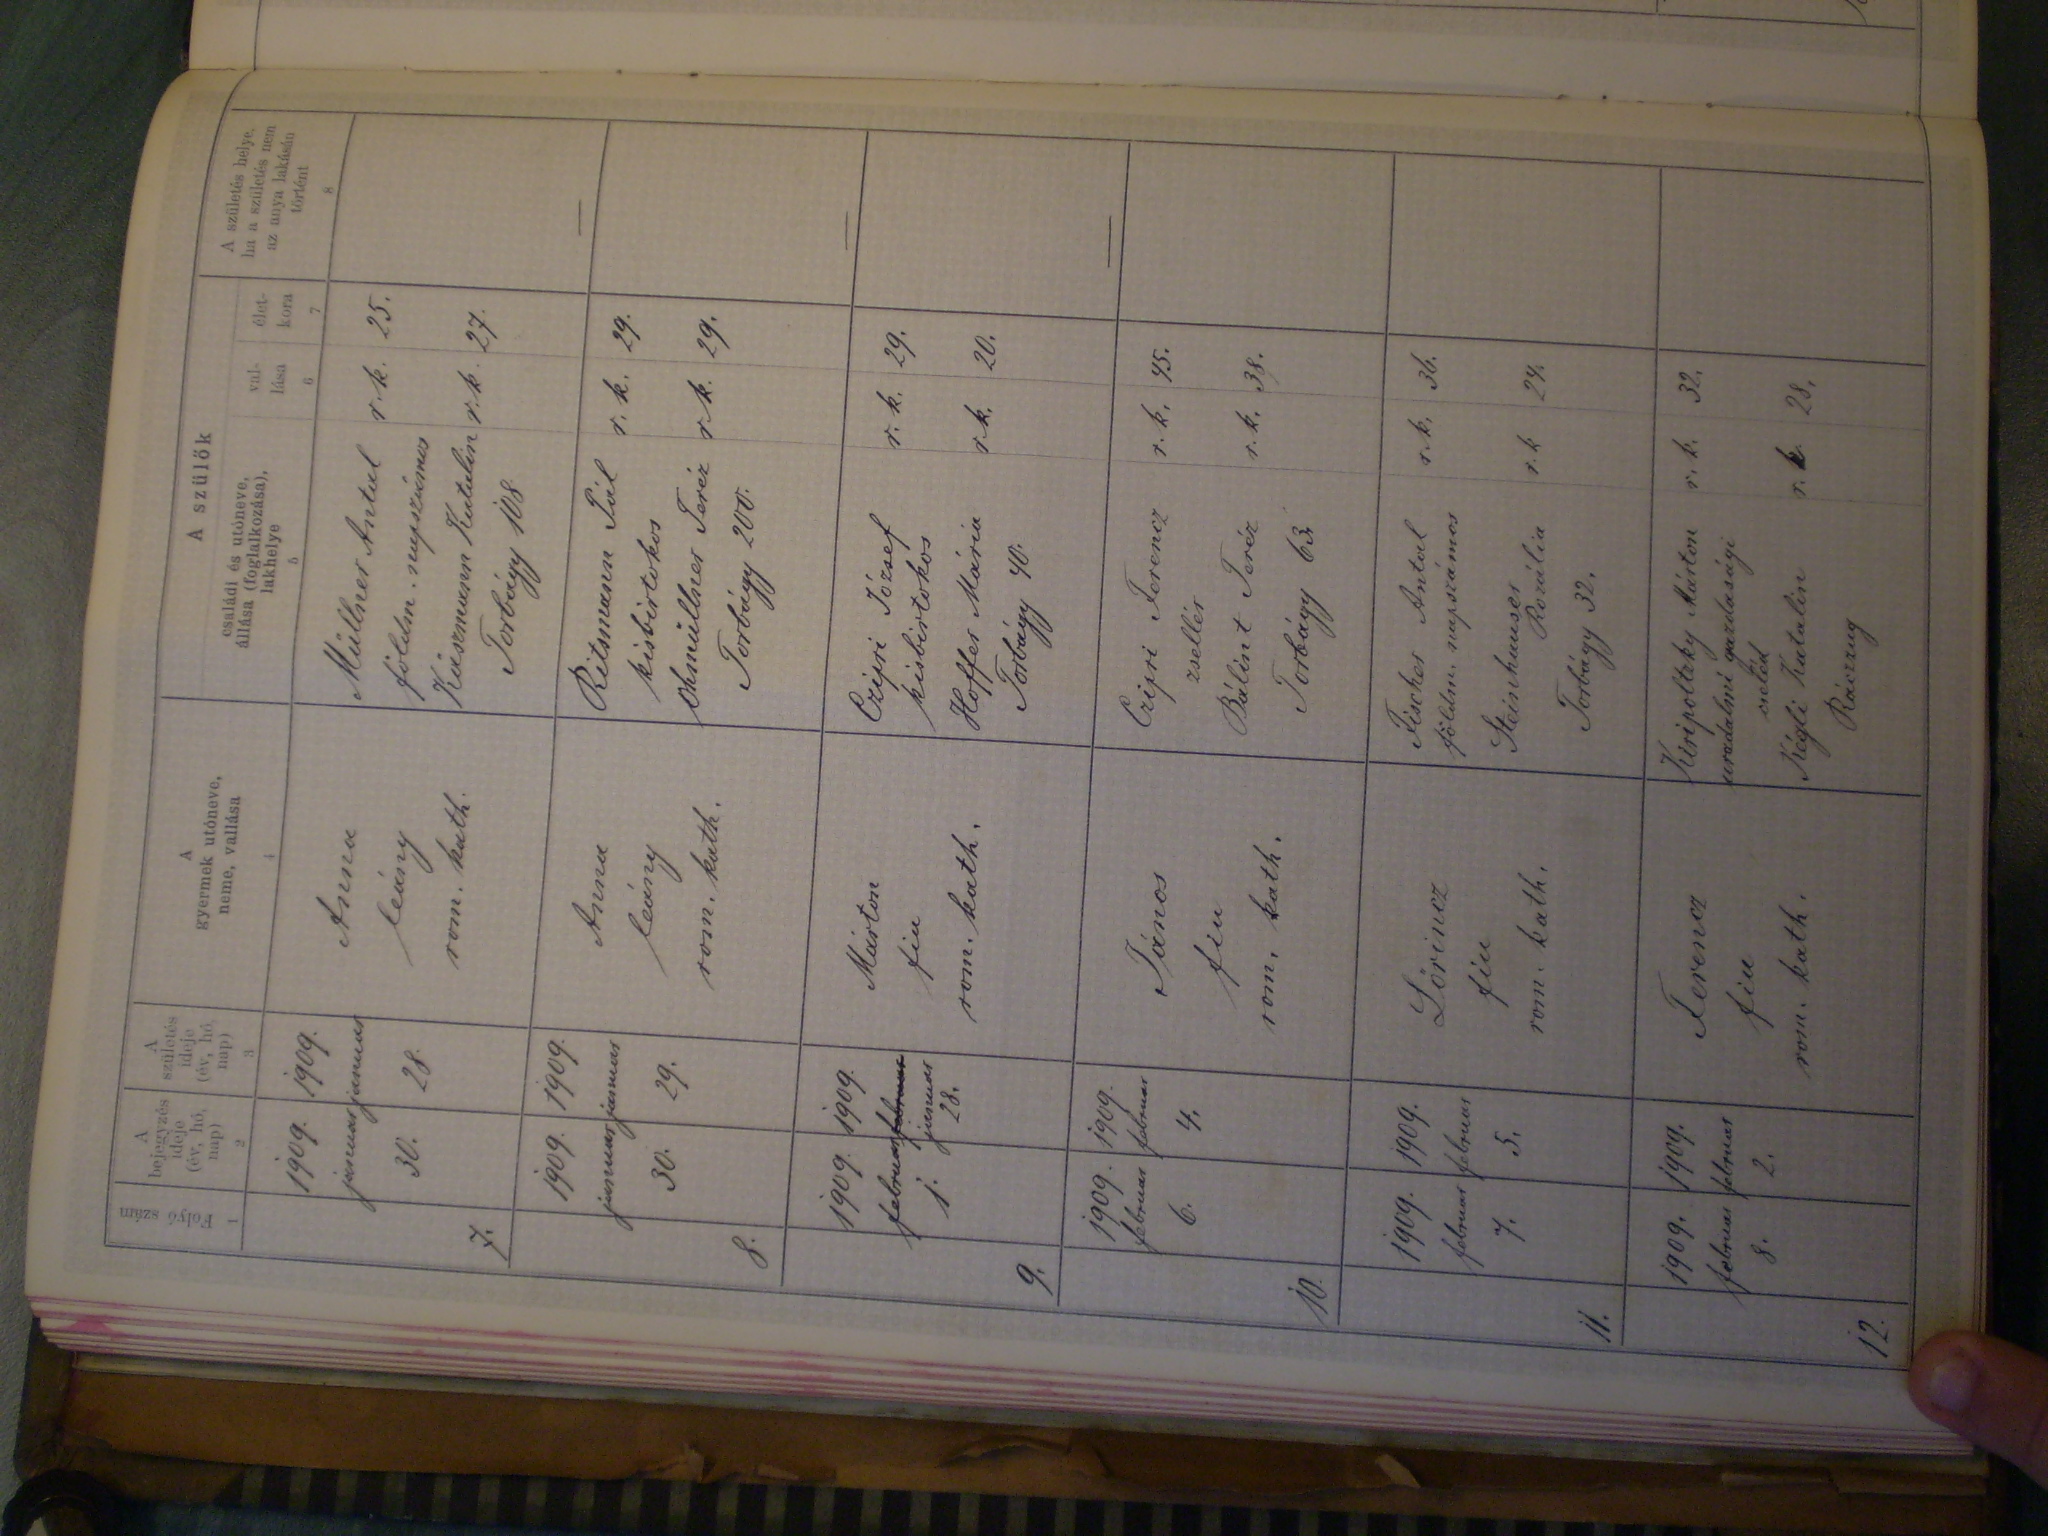 Folyó szám
A bejegyzés ideje (év, hó, nap)
A születés ideje (év, hó, nap)
A gyermek utóneve, neme, vallása
A szülők
családi és utóneve, állása (foglalkozása), lakhelye
vallása
életkora
A születés helye, ha a születés nem az anya lakásán történt
1 2 3 4 5 6 7 8
7.
1909. januar 30.
1909. januar 28.
Anna
leány
rom. kath.
Müllner Antal r. k. 25.
földm. napszámos
Kászmann Katalin r. k. 27.
Torbágy 108
8.
1909. januar 30.
1909. januar 29.
Anna
leány
rom. kath.
Ritsmann Pál r. k. 29.
kisbirtokos
Ohmüllner Teréz r. k. 29.
Torbágy 200.
—
9.
1909. februar 1.
1909. februar januar 28.
Márton
fiu
rom. kath.
Czipri József r. k. 29.
kisbirtokos
Hoffer Mária r. k. 20.
Torbágy 40.
—
10.
1909. februar 6.
1909. februar 4.
János
fiu
rom. kath.
Czipri Ferencz r. k. 45.
zsellér
Bálint Teréz r. k. 38.
Torbágy 63.
—
11.
1909. februar 7.
1909. februar 5.
Lőrincz
fiu
rom. kath.
Fischer Antal r. k. 36.
földm. napszámos
Steinhauser
Rozália r. k. 24.
Torbágy 32.
12.
1909. februar 8.
1909. februar 2.
Ferencz
fiu
rom. kath.
Kiripolszky Márton r. k. 32.
uradalmi gazdasági
cseléd
Kégli Katalin r. k. 28.
Raczzug